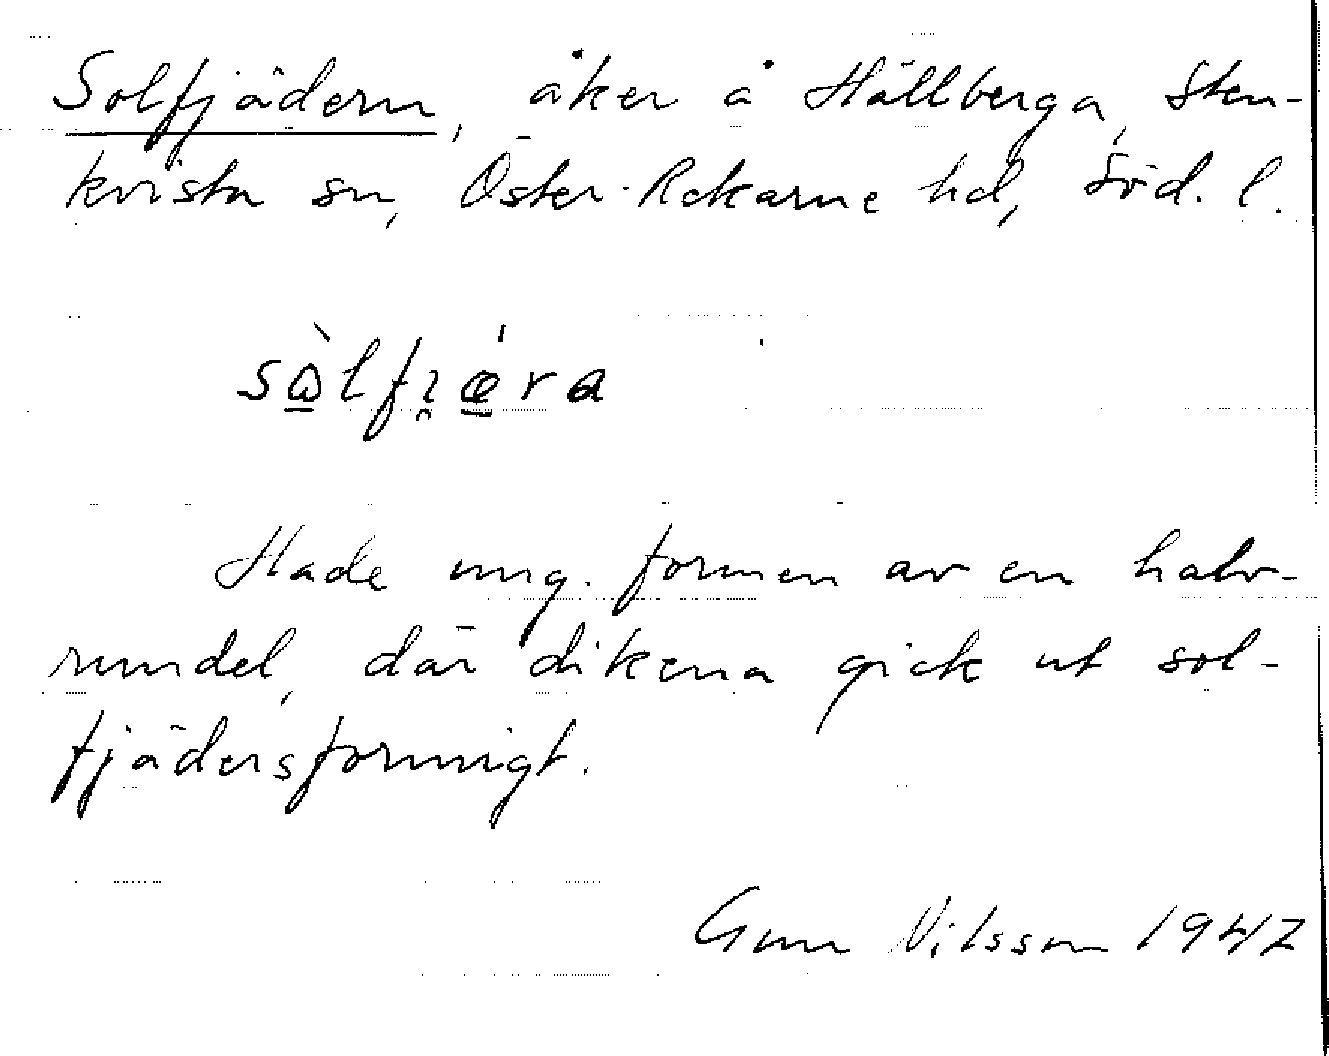 Solfjädern, åker å Hällberga, Sten-
kvista sn, Öster-Rekarne hd, Söd. l.
sὼlfɿǽra
Hade ung. formen av en halv-
rundel, där dikena gick ut sol-
fjädersformigt.
Gun Nilsson 1947